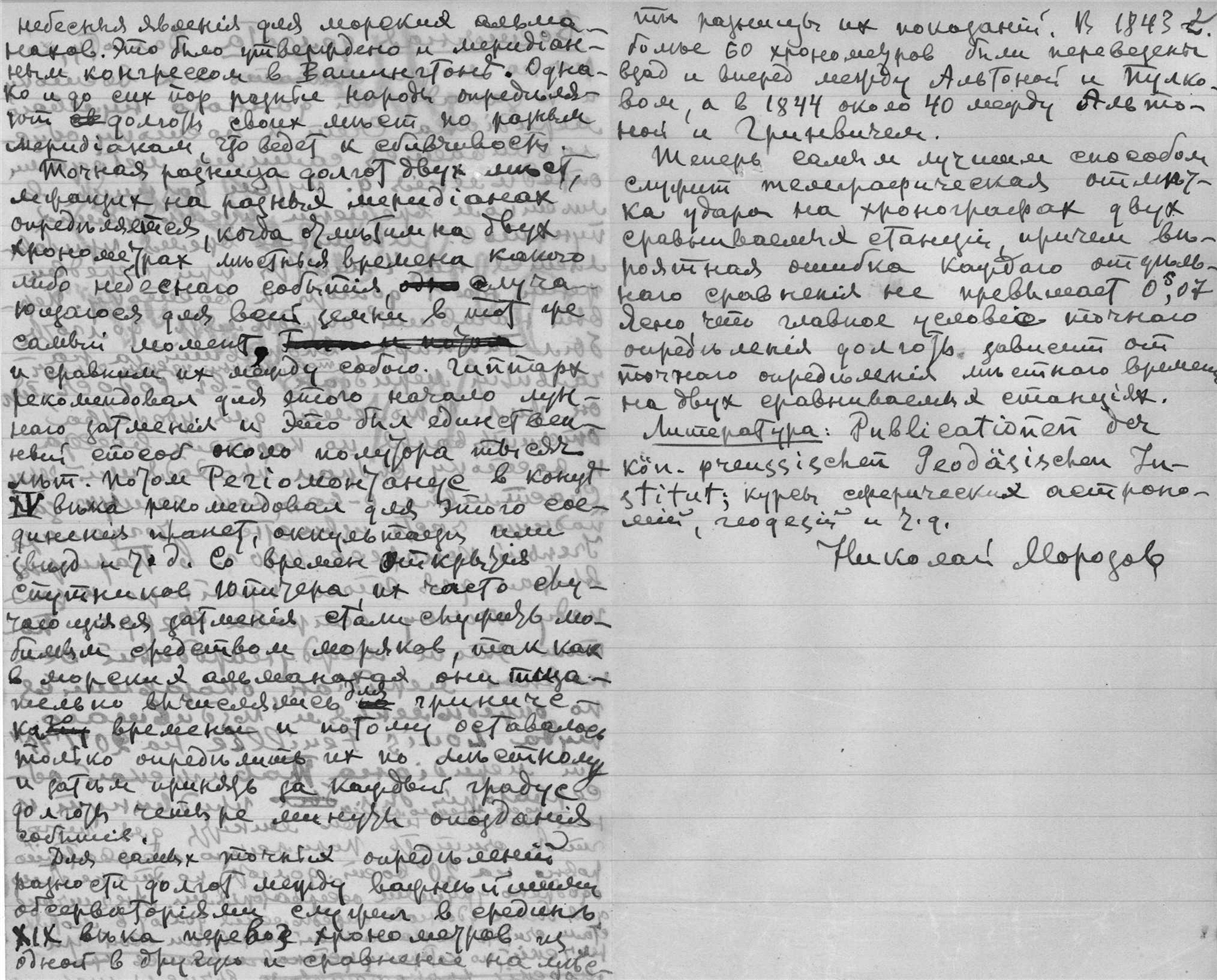 небесныя явленія для морския альма-
наков. Это было утверждено и меридіан-
ным конгрессом в Вашингтонѣ. Одна-
ко и до сих пор разные народы опредѣля-
ют долготы своих мѣст по разным
меридіанам, что ведет к сбивчивости.
Точная разница долгот двух мѣст,
лежащих на разных меридіанах
опредѣляется, когда отмѣтим на двух
хронометрах мѣстныя времена какого
либо небеснаго событія, случа-
ющагося для всей земли в тот же
самый момент,
и сравним их между собою. Гиппарх
рекомендовал для этого начало лун-
наго затменія и это был единствен-
ный способ около полутора тысяч
лѣт. Потом Региомонтанус в концѣ
XV вѣка рекомендовал для этого сое-
диненія планет, оккультаціи ими
звѣзд и т. д. Со времен открытія
спутников Юпитера, их часто слу-
чающіяся затменія стали служить лю-
бимым средством моряков, так как
в морских альманахах они тща-
тельно вычислялись для гриниче-
ка времени и потому оставалось
только опредѣлить их по мѣстному
и затѣм принять за каждый градус
долготы четыре минуты опозданія
событія.
Для самых точных опредѣленій
разности долгот между важнѣйшими
обсерваторіями служил в срединѣ
XIX вѣка перевоз хронометров из
одной в другую и сравнение на мѣс-
ть разницы их показаній. В 1843 г.
более 60 хронометров были перевезены
взад и вперед между Альтоной и Пулко-
вом, а в 1844 около 40 между Альто-
ной и Гриневичем.
Теперь самым лучшим способом
служит телеграфическая отмѣт-
ка удара на хронографах двух
сравниваемых станцій, причем вѣ-
роятная ошибка каждаго отдѣль-
наго сравненія не превышает 0ˢ,07
Ясно, что главное условіе точнаго
опредѣленія долготы зависит от
точнаго опредѣленія мѣстнаго времени
на двух сравниваемых станціях.
Литература: Publicationen der
kön. preussischen Geodäsischen In-
stitut; курсы сферических астроно-
мій, геодезій и т. д.
Николай Морозов